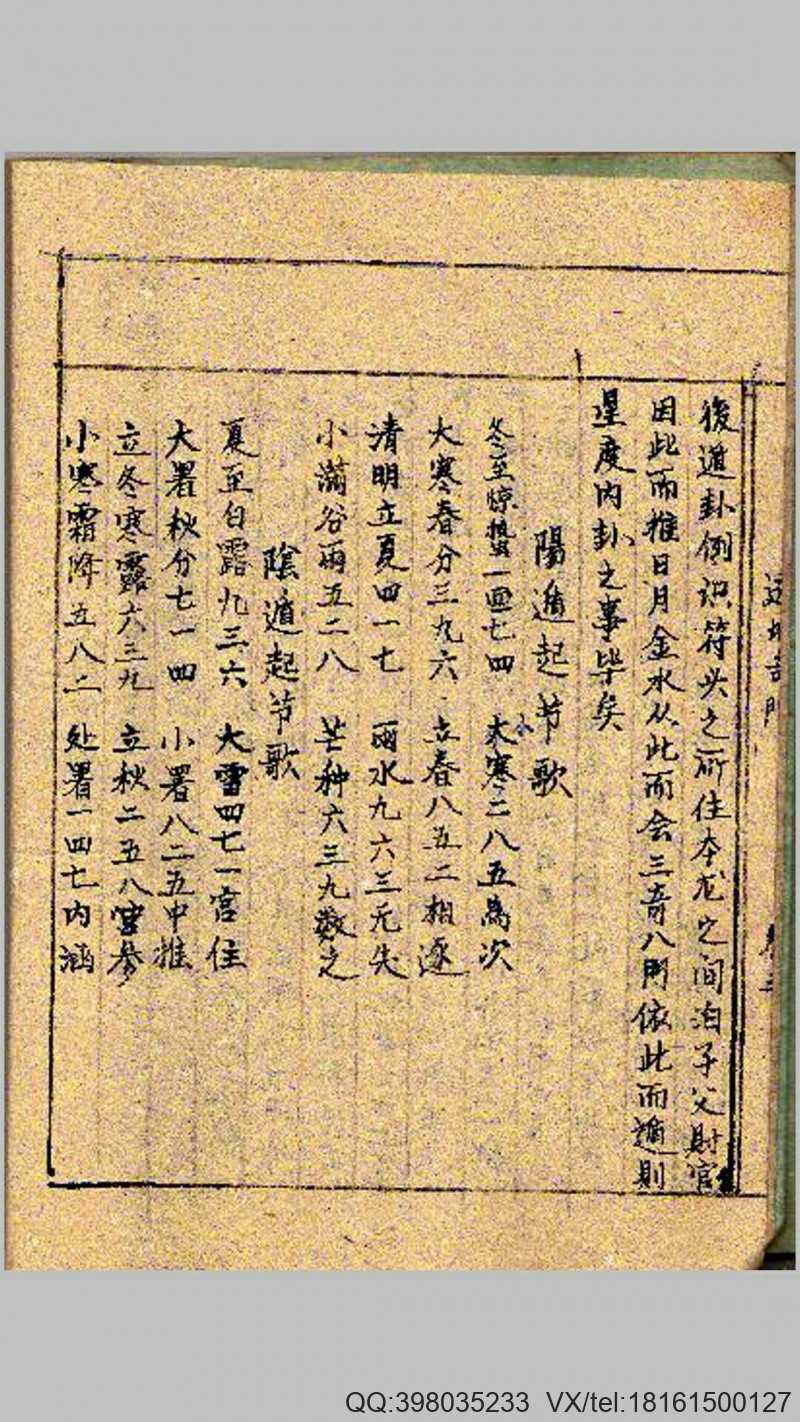 後遁卦例識符头之所住本龙之间泊子父財官
因此而推日月金水从此而会三奇八門依此而遁則
星度内卦之事毕矣
陽遁起节歌
冬至惊蛰一四七四 小寒二八五為次
大寒春分三九六 立春八五二相逐
清明立夏四一七 雨水九六三无失
小满谷雨五二八 芒种六三九數之
陰遁起节歌
夏至白露九三六 大雪四七一宫住
大署秋分七一四 小署八二五中推
立冬寒露六三九 立秋二五八宮参
小寒霜降五八二 处署一四七内涵
QQ:398035233 VX/tel:18161500127